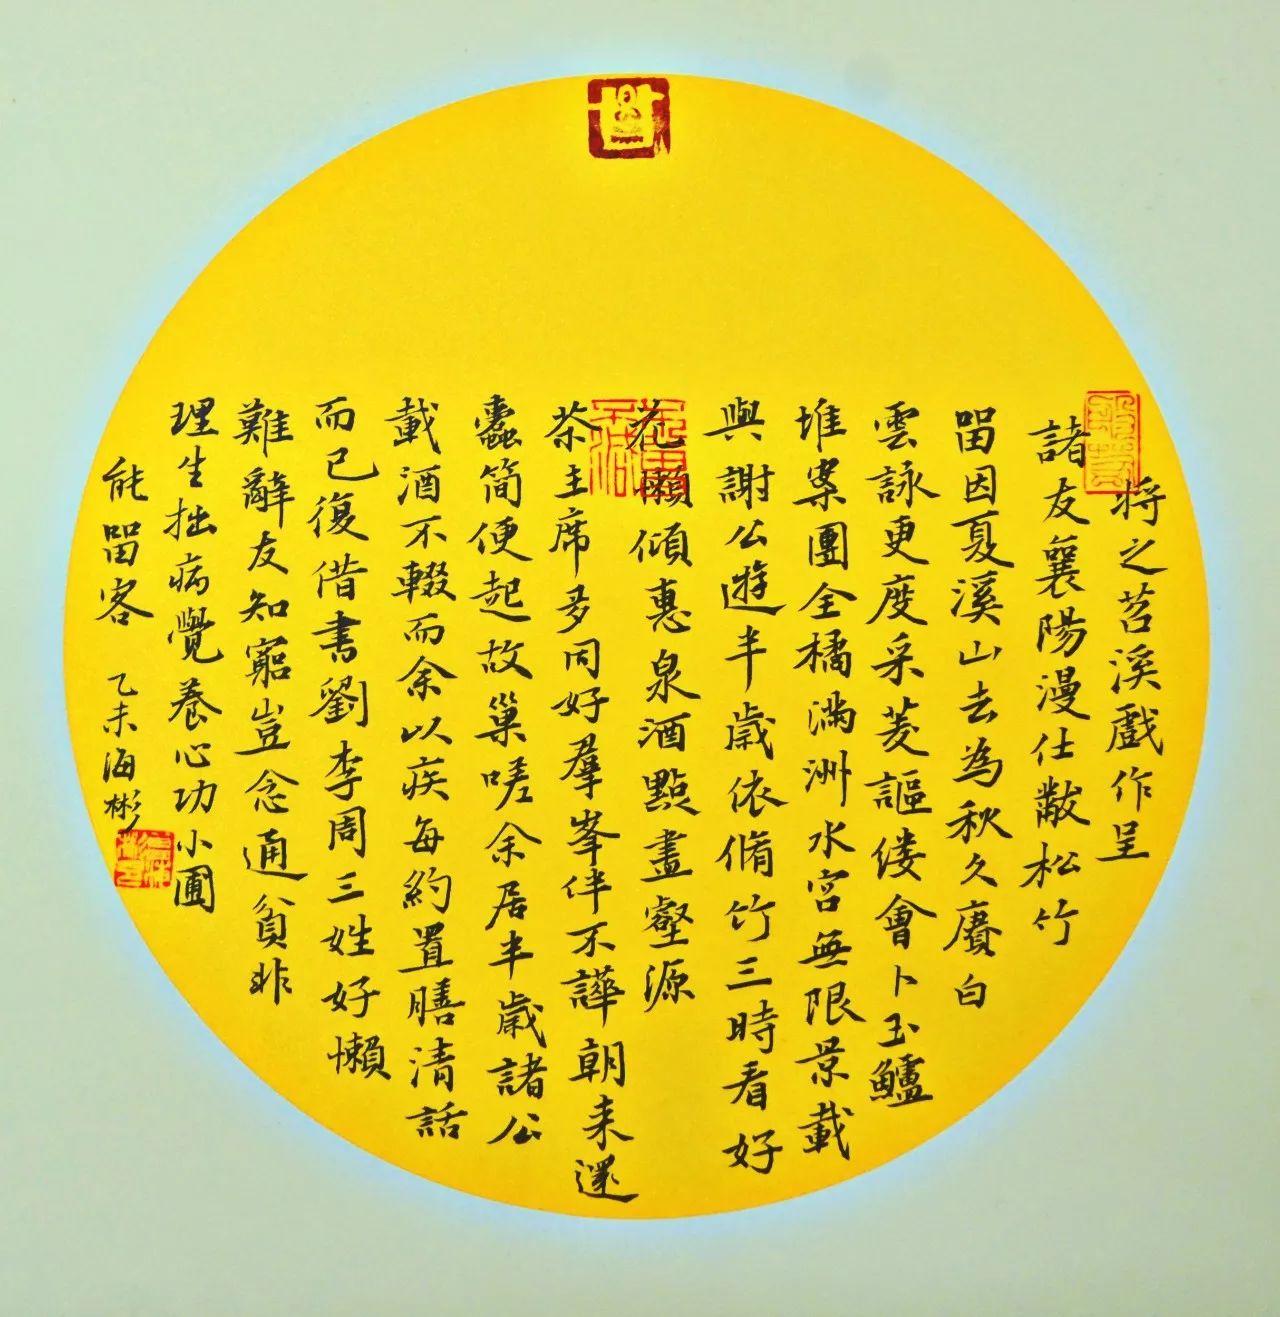 將之苕溪戲作呈
諸友襄陽漫仕敝松竹
畱因夏溪山去為秋久賡白
雲詠更度采菱謳縷會卜玉鱸
堆案團全橘滿洲水宮無限景載
與謝公遊半歲依脩竹三時看好
花懶傾惠泉酒點盡壑源
茶主席多同好羣峯伴不譁朝来還
蠹簡便起故巢嗟余居半歲諸公
載酒不輟而余以疾每約置膳清話
而已復借書劉李周三姓好懶
難辭友知窮豈念通貧非
理生拙病覺養心功小圃
能畱客 乙未海彬